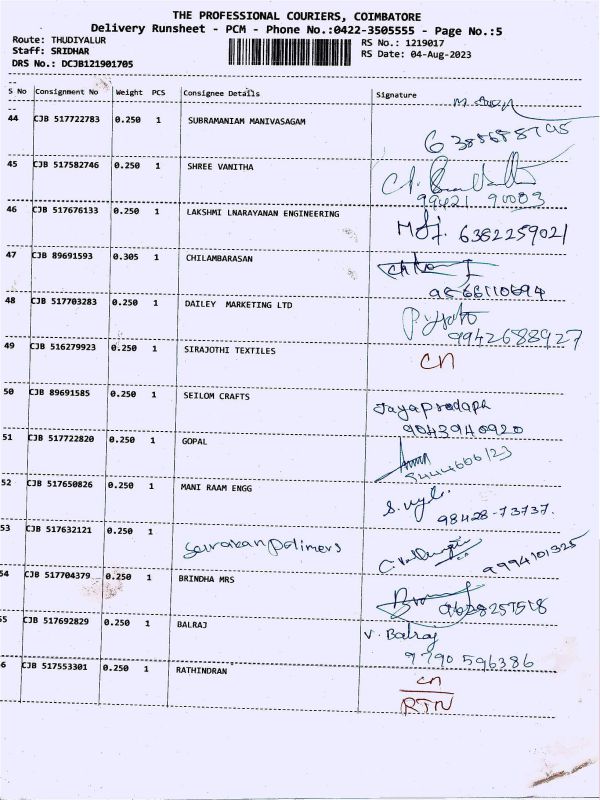 THE PROFESSIONAL COURIERS, COIMBATORE
Delivery Runsheet - PCM - Phone No.:0422-3505555 - Page No.:5
Route: THUDIYALUR RS No.: 1219017
Staff: SRIDHAR RS Date: 04-Aug-2023
DRS No.: DCJB121901705
S No Consignment No Weight PCS Consignee Details Signature
44 CJB 517722783 0.250 1 SUBRAMANIAM MANIVASAGAM
45 CJB 517582746 0.250 1 SHREE VANITHA
99421 90083
46 CJB 517676133 0.250 1 LAKSHMI LNARAYANAN ENGINEERING
6382259021
47 CJB 89691593 0.305 1 CHILAMBARASAN
9566110694
48 CJB 517703283 0.250 1 DAILEY MARKETING LTD
9942688927
49 CJB 516279923 0.250 1 SIRAJOTHI TEXTILES CN
50 CJB 89691585 0.250 1 SEILOM CRAFTS Jayapradapa
9043940920
51 CJB 517722820 0.250 1 GOPAL
52 CJB 517650826 0.250 1 MANI RAAM ENGG
98428-73737.
53 CJB 517632121 0.250 1 Saravanan Polimers
9994101325
54 CJB 517704379 0.250 1 BRINDHA MRS
9628257518
55 CJB 517692829 0.250 1 BALRAJ V. Balraj
9790 596386
6 CJB 517553301 0.250 1 RATHINDRAN CN
RTN